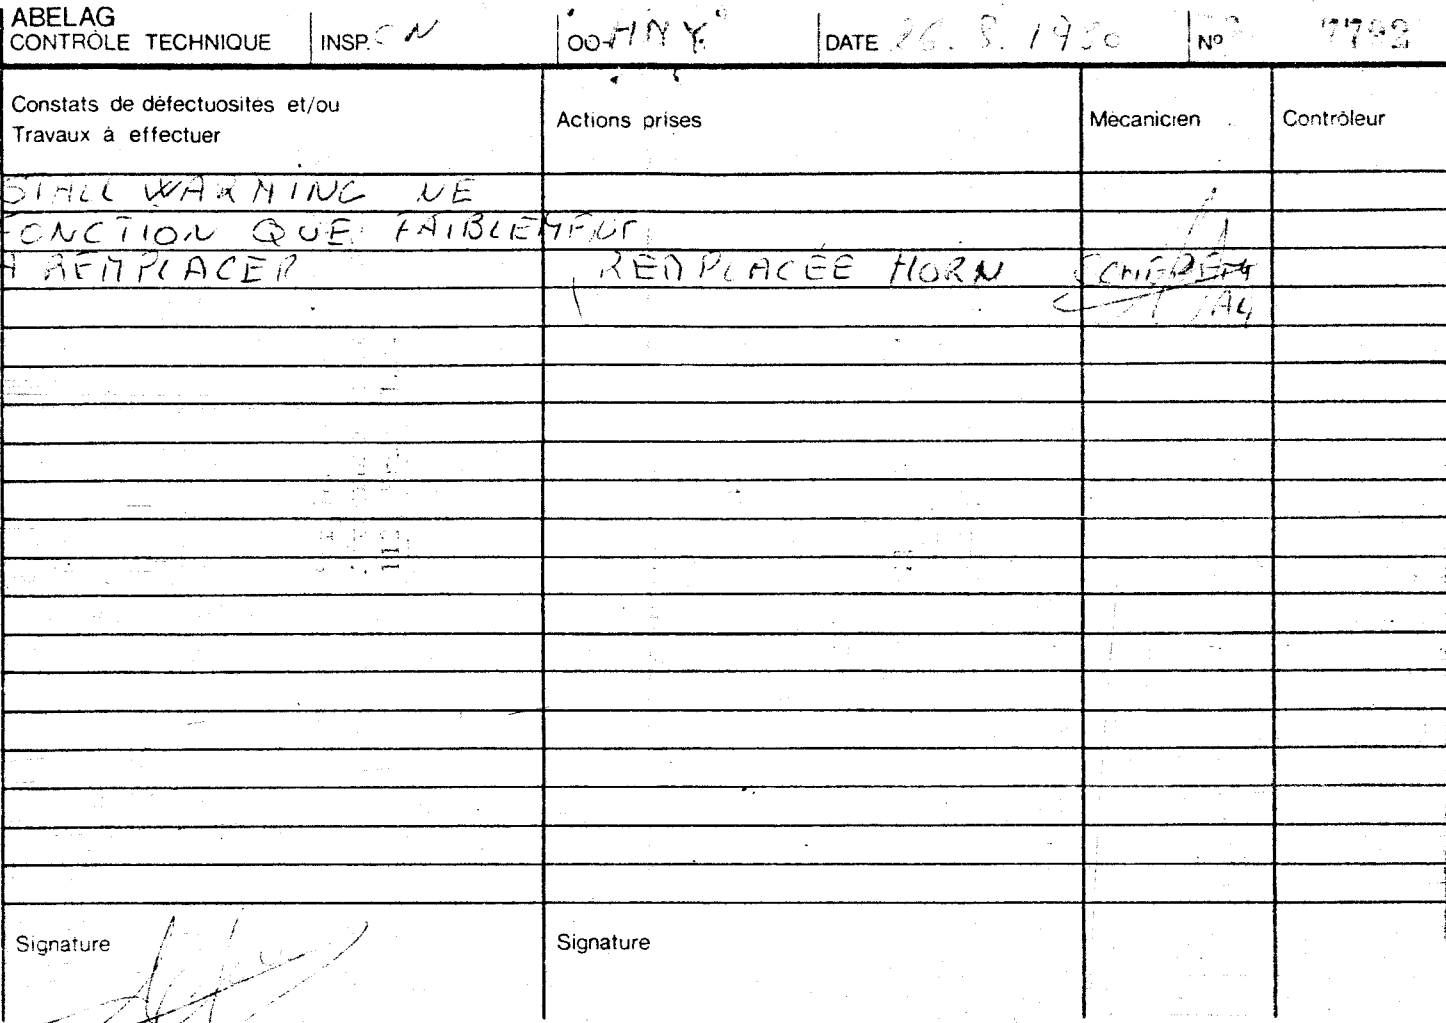 ABELAG
CONTRÔLE TECHNIQUE INSP. CN OO-HNY. DATE 26.8.1980 Nº 7792
Constats de défectuosités et/ou
Travaux à effectuer
Actions prises
Mécanicien
Contrôleur
STALL WARNING NE
FONCTION QUE FAIBLEMENT
A REMPLACER REMPLACÉE HORN
A4
Signature
Signature